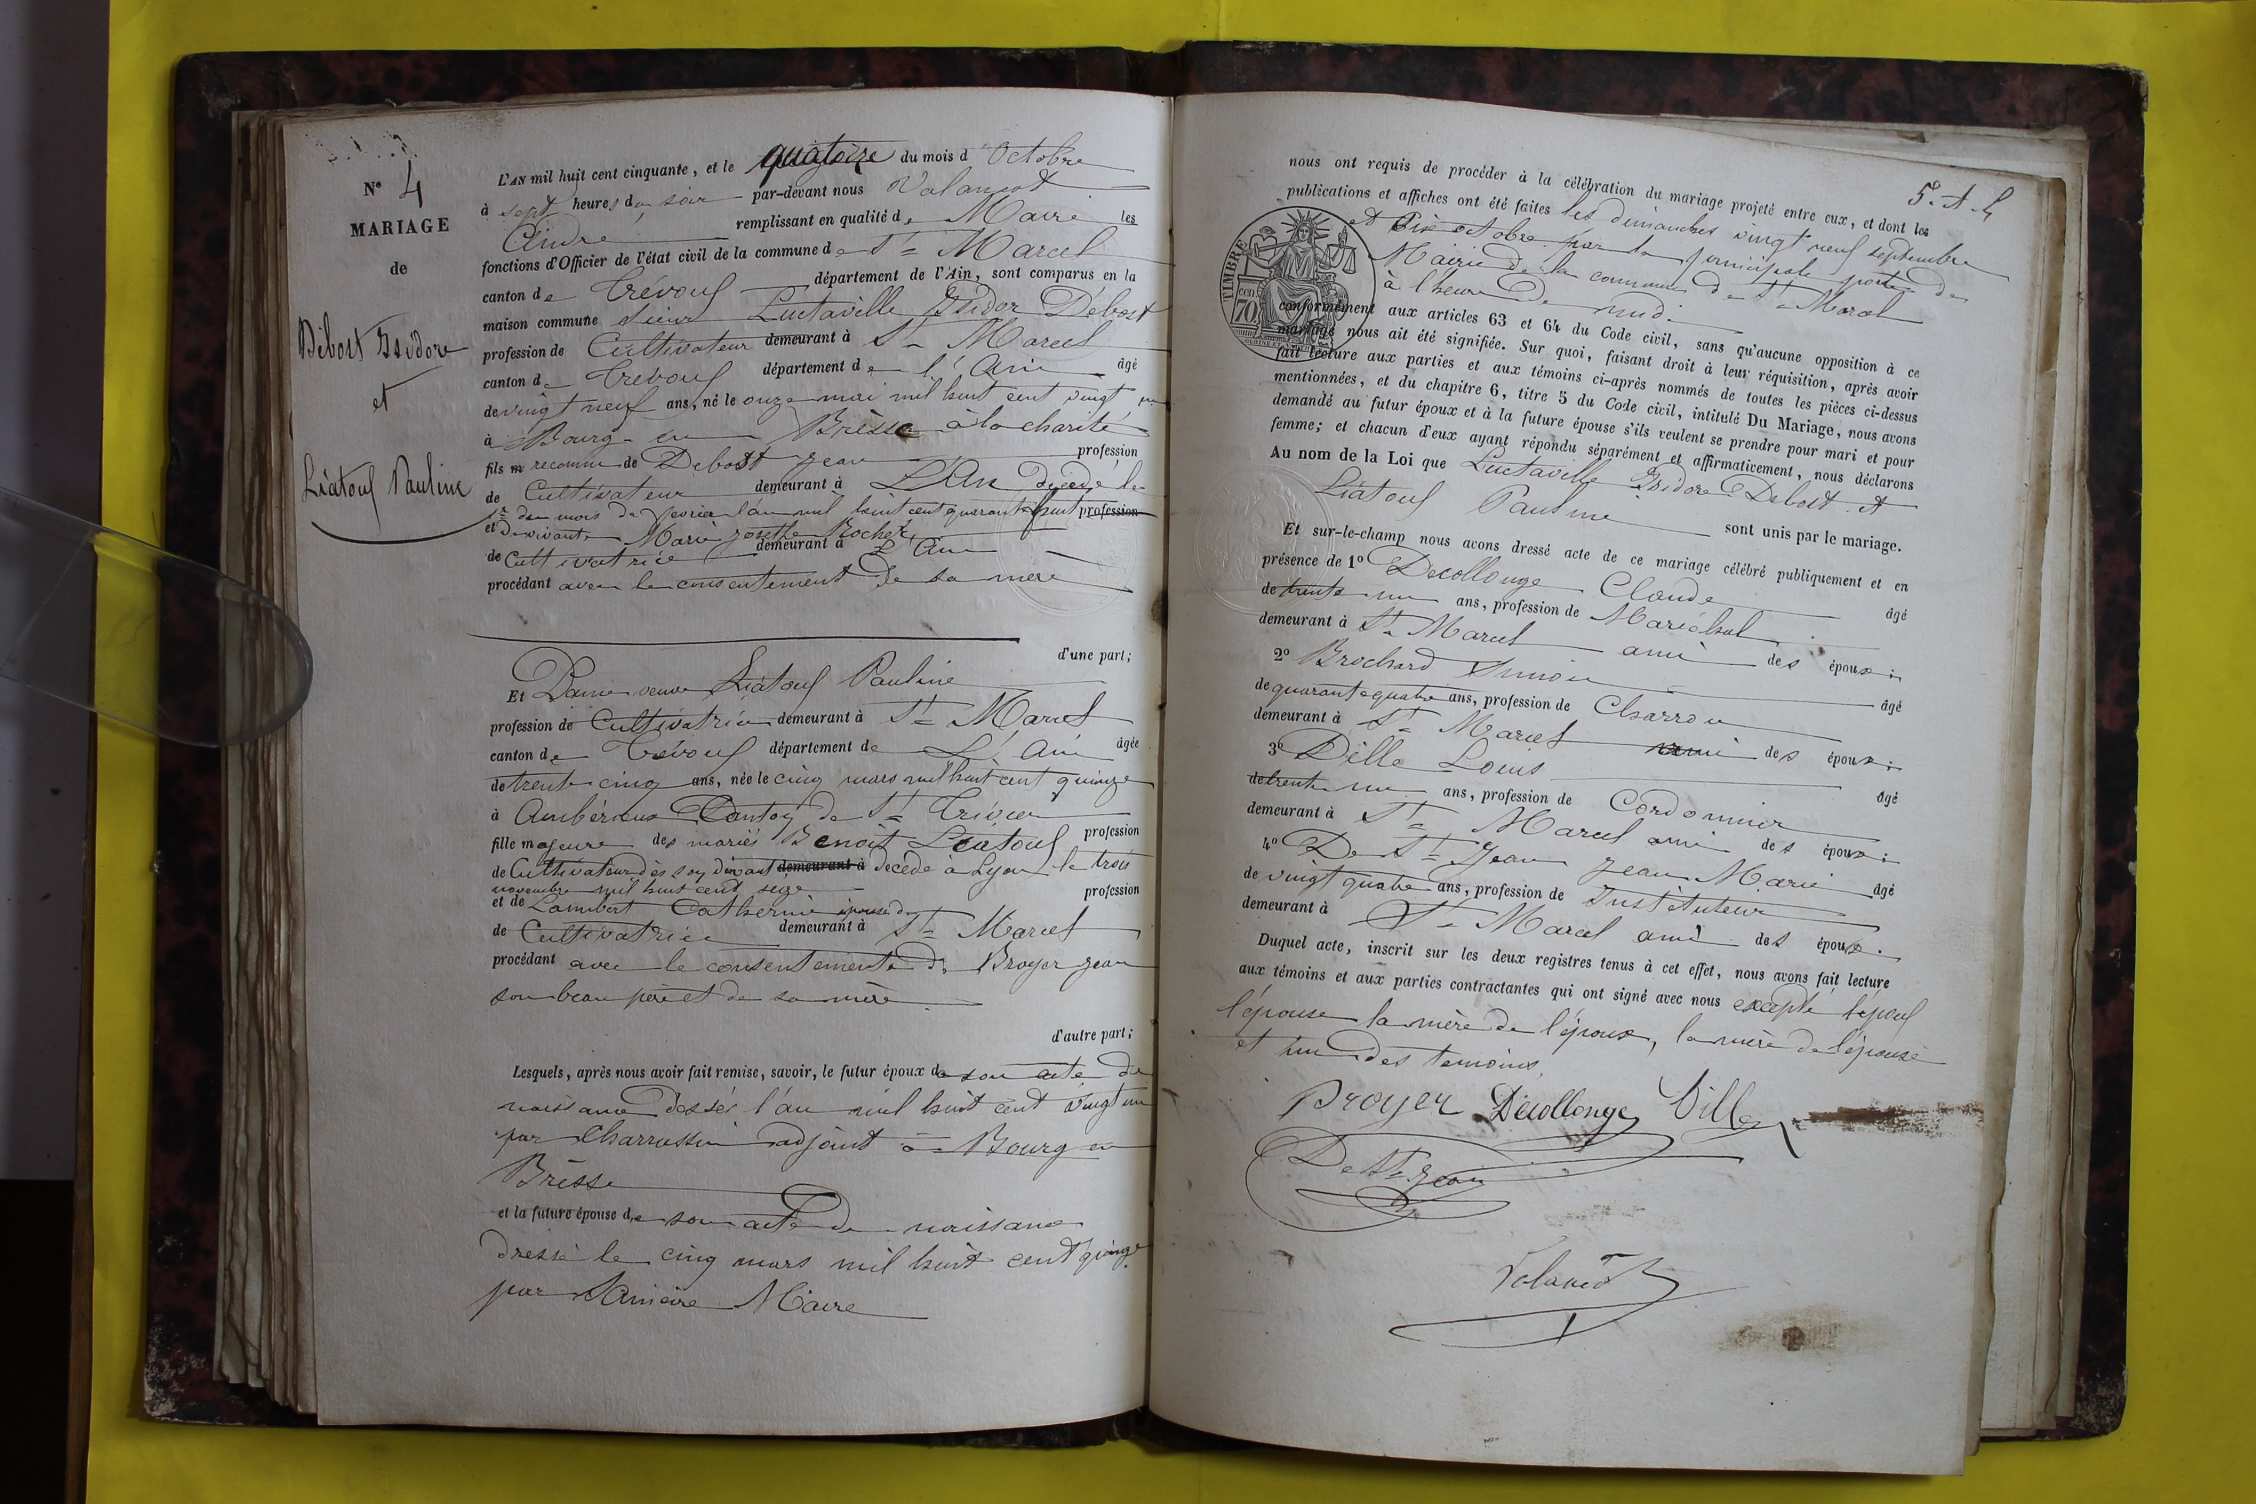 N° 4
MARIAGE
de
Débost Isidore
et
Liatouf Pauline
L'AN mil huit cent cinquante, et le quatorze du mois d'Octobre
à sept heures du soir par-devant nous Valançot
André remplissant en qualité de Maire les
fonctions d'Officier de l'état civil de la commune de St Marcel
canton de Trévoux département de l'Ain, sont comparus en la
maison commune sieur Luctaville Isidor Débost
profession de Cultivateur demeurant à St Marcel
canton de Trévoux département de l'Ain âgé
de vingt neuf ans, né le onze mai mil huit cent vingt un
à Bourg en Brèsse à la charité
fils reconnu de Debost Jean profession
de Cultivateur demeurant à décédé le
1er du mois de fevrier l'an mil huit cent quarante huit profession
et de vivante Marie Josethe Rochet
de Cultivatrice demeurant à
procédant avec le consentement de sa mère
d'une part;
Et Dame veuve Liatouf Pauline
profession de Cultivatrice demeurant à St Marcel
canton de Trévoux département de L'Ain âgée
de trente cinq ans, née le cinq mars mil huit cent quinze
à Ambérieux Canton de St Trivier
fille majeure des mariés Benoît Liatouf profession
de Cultivateur dès son vivant demeurant à décédé à Lyon le trois
novembre mil huit cent seize profession
et de Lambert Catherine épouse
de Cultivatrice demeurant à St Marcel
procédant avec le consentement de Broyer Jean
son beau père et de sa mère
d'autre part;
Lesquels, après nous avoir fait remise, savoir, le futur époux de son acte de
naissance dressé l'an mil huit cent vingt un
par Charrassin adjoint à Bourg en
Brèsse
et la future épouse de son acte de naissance
dressé le cinq mars mil huit cent quinze
par Maire
5e A. 4
nous ont requis de procéder à la célébration du mariage projeté entre eux, et dont les
publications et affiches ont été faites les dimanches vingt neuf septembre
et Six octobre par la principale porte de
Mairie de la commune de St Marcel
à l'heure de midi
TIMBRE
70
conformément aux articles 63 et 64 du Code civil, sans qu'aucune opposition à ce
mariage nous ait été signifiée. Sur quoi, faisant droit à leur réquisition, après avoir
fait lecture aux parties et aux témoins ci-après nommés de toutes les pièces ci-dessus
mentionnées, et du chapitre 6, titre 5 du Code civil, intitulé Du Mariage, nous avons
demandé au futur époux et à la future épouse s'ils veulent se prendre pour mari et pour
femme; et chacun d'eux ayant répondu séparément et affirmativement, nous déclarons
Au nom de la Loi que Luctaville Isidore Debost et
Liatouf Pauline sont unis par le mariage.
Et sur-le-champ nous avons dressé acte de ce mariage célébré publiquement et en
présence de 1° Decollonge Claude âgé
de trente un ans, profession de Maréchal
demeurant à St Marcel ami des époux;
2° Brochard Simon âgé
de quarante quatre ans, profession de Charron
demeurant à St Marcel ami des époux;
3° Dille Louis âgé
de trente un ans, profession de Cordonnier
demeurant à St Marcel ami des époux;
4° De St Jean Jean Marie âgé
de vingt quatre ans, profession de Instituteur
demeurant à St Marcel ami des époux.
Duquel acte, inscrit sur les deux registres tenus à cet effet, nous avons fait lecture
aux témoins et aux parties contractantes qui ont signé avec nous excepté l'époux
l'épouse la mère de l'époux, la mère de l'épouse
et un des temoins.
Broyer Décollonge Dille
De St Jean
Valançot